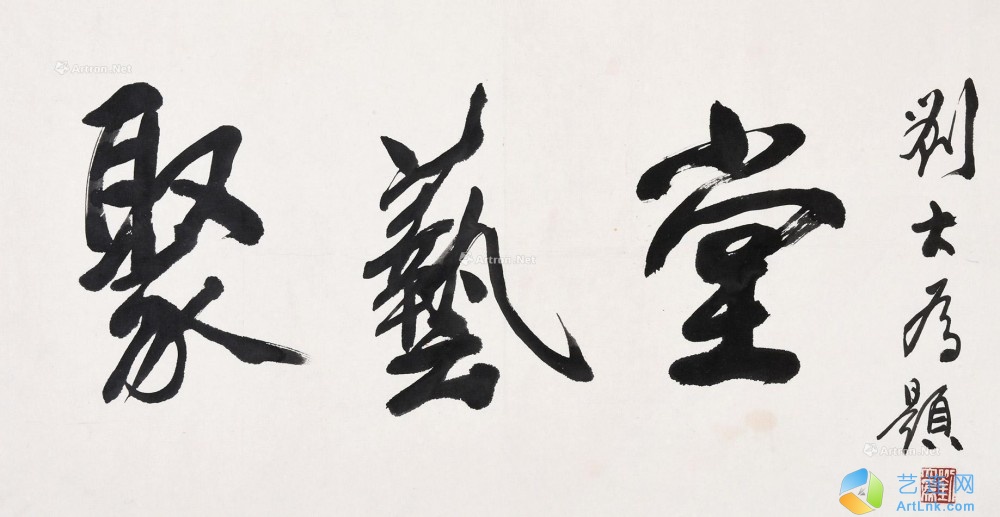 聚藝堂
劉大为題
Artron.Net
Artron.Net
Artron.Net
艺连网
ArtLnk.com